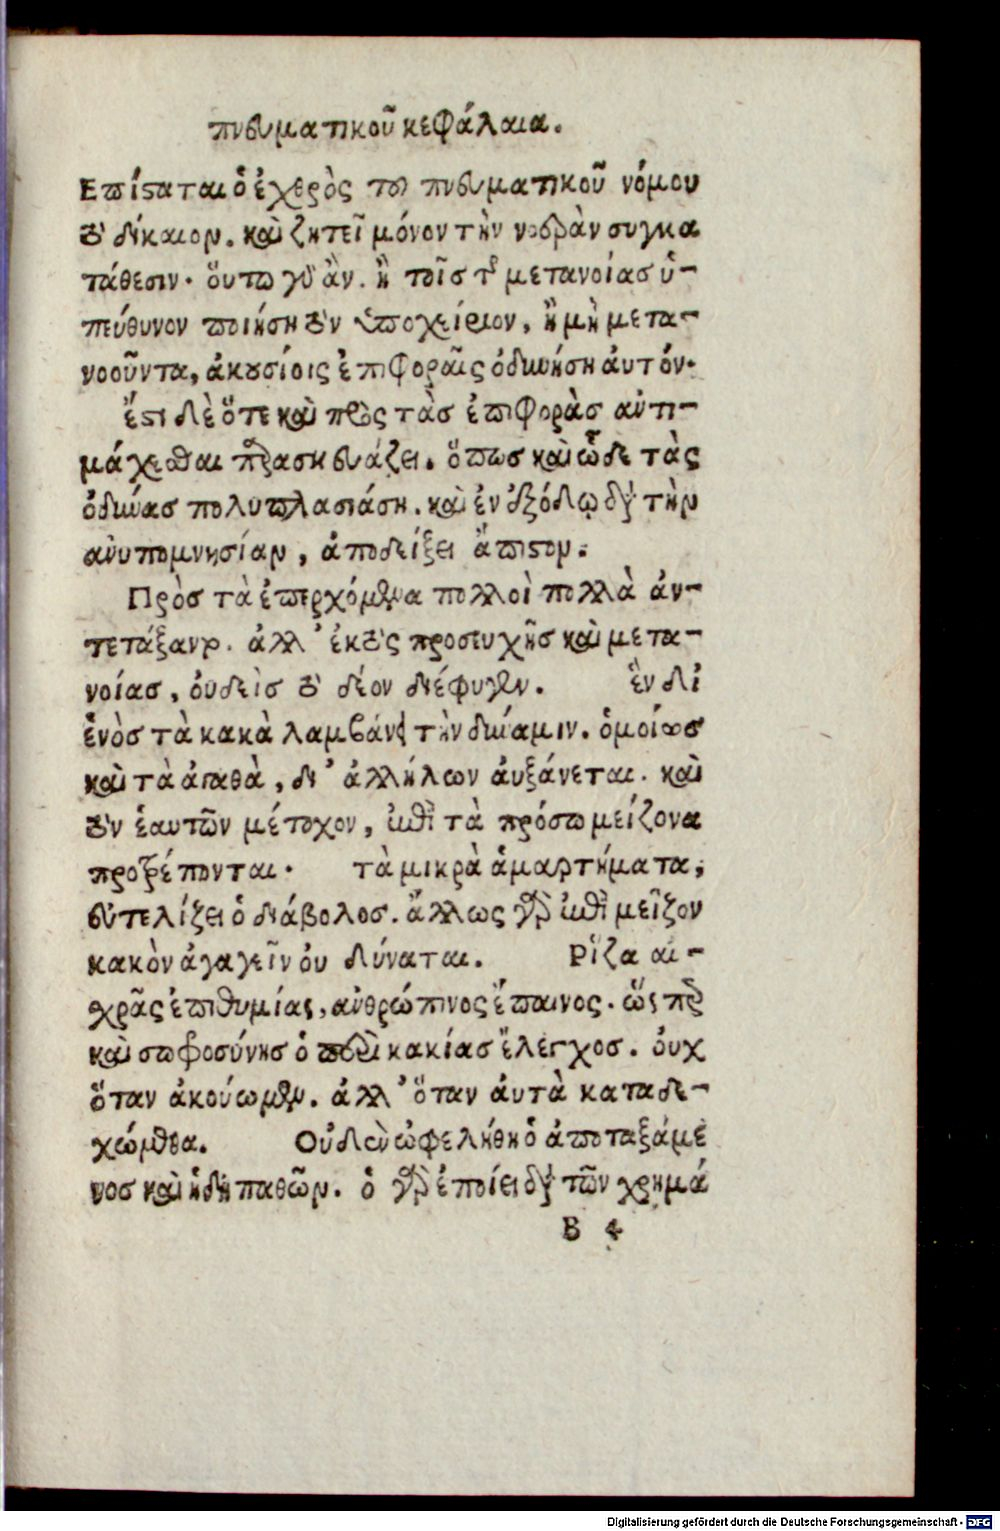 πνευματικοῦ κεφάλαια.
Επίσταται ὁ ἐχθρὸς τοῦ πνευματικοῦ νόμου
τὸ δίκαιον. καὶ ζητεῖ μόνον τὴν νοερὰν συγκα
τάθεσιν. ὅυτω γὰρ ἂν. ἢ τοῖσ τῆς μετανοίασ ὑ-
πεύθυνον ποιήση τὸν ὑποχείριον, ἢ μὴ μετα-
νοοῦντα, ἀκουσίοις ἐπιφοραῖς ὀδυνήση ἀυτόν.
ἔστι δὲ ὅτε καὶ πρὸς τὰσ ἐπιφορὰσ ἀντι-
μάχεσθαι παρασκευάζει. ὅπωσ καὶ ὧδε τὰς
ὀδύνασ πολυπλασιάση. καὶ ἐν ἐξόδῳ διὰ τὴν
ἀνυπομνησίαν, ἀποδείξει ἄπιστον.
Πρὸσ τὰ ἐπερχόμενα πολλοὶ πολλὰ ἀν-
τετάξαντο. ἀλλ' ἐκτὸς προσευχῆσ καὶ μετα-
νοίασ, ὀυδεὶσ τὸ δέον διέφυγεν. ἓν δἰ
ἑνὸσ τὰ κακὰ λαμβάνει τὴν δύναμιν. ὁμοίωσ
καὶ τὰ ἀγαθὰ, δι' ἀλλήλων ἀυξάνεται. καὶ
τὸν ἑαυτῶν μέτοχον, ἐπὶ τὰ πρόσω μείζονα
προτρέπονται. τὰ μικρὰ ἁμαρτήματα,
ἐυτελίζει ὁ διάβολοσ. ἄλλως γὰρ ἐπὶ μεῖζον
κακὸν ἀγαγεῖν ὀυ δύναται. Ρίζα αι-
χρᾶς ἐπιθυμίας, ἀνθρώπινος ἔπαινος. ὥσπερ
καὶ σωφροσύνησ ὁ περὶ κακίασ ἔλεγχοσ. ὀυχ
ὅταν ἀκούωμεν. ἀλλ' ὅταν ἀυτὰ καταδε-
χώμεθα. Οὐδὲν ὠφελήθη ὁ ἀποταξάμε
νοσ καὶ ἡδυπαθῶν. ὁ γὰρ ἐποίει διὰ τῶν χρημά
B 4
Digitalisierung gefördert durch die Deutsche Forschungsgemeinschaft - DFG